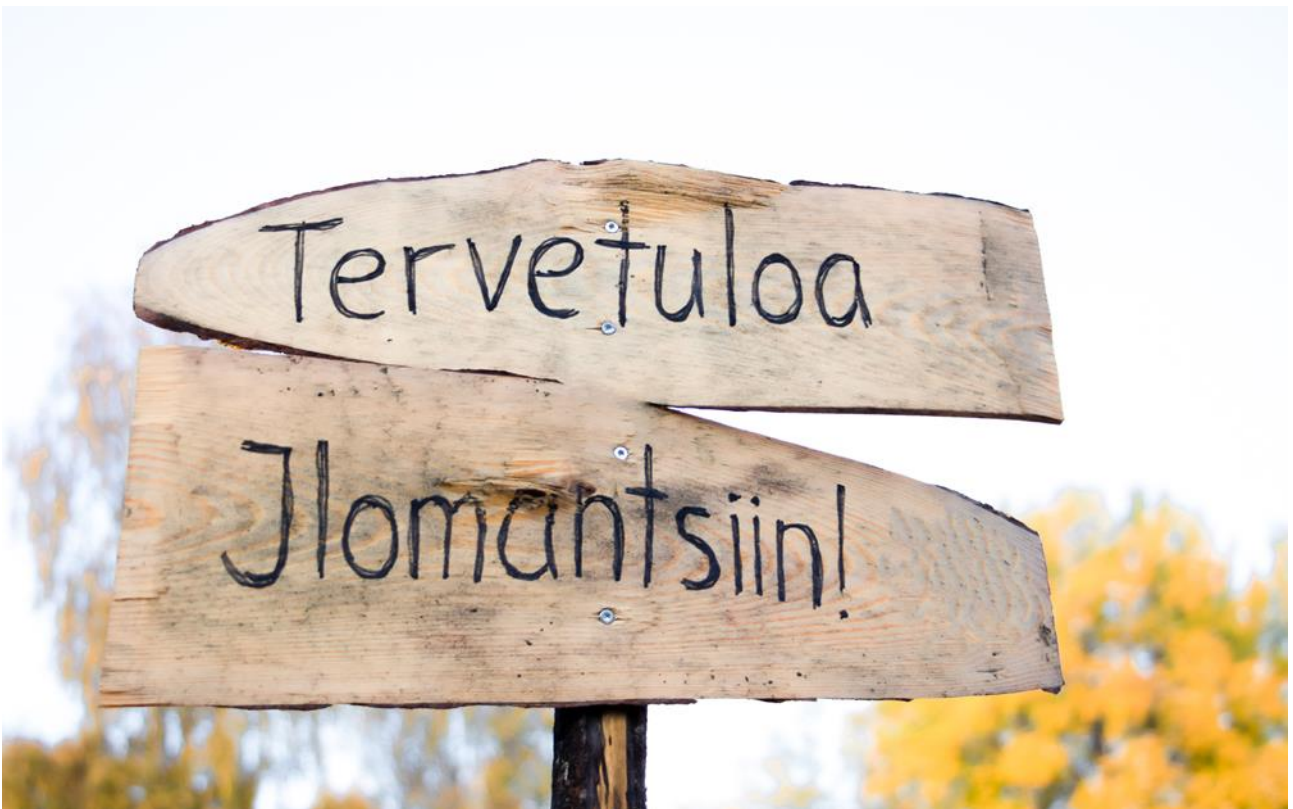 Tervetuloa
Ilomantsiin!